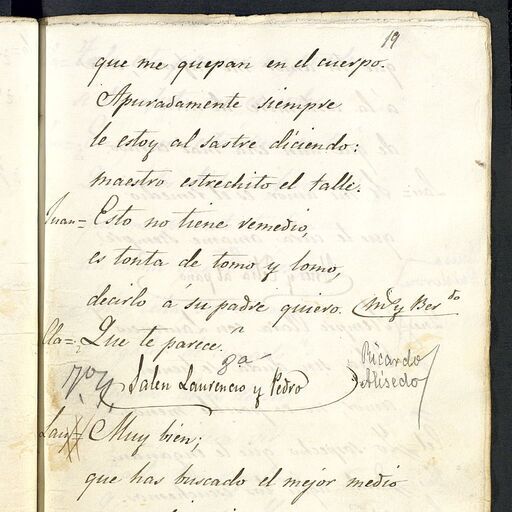 19
que me quepan en el cuerpo.
Apuradamente siempre
le estoy al sastre diciendo:
maestro estrechito el talle.
Juan= Esto no tiene remedio,
es tonta de tomo y lomo,
decirlo á su padre quiero. (Me y Berdo
Cla=¿Que te parece?
8a
Salen Laurencio y Pedro
Ricardo
Alisedo
Lau= Muy bien;
que has buscado el mejor medio